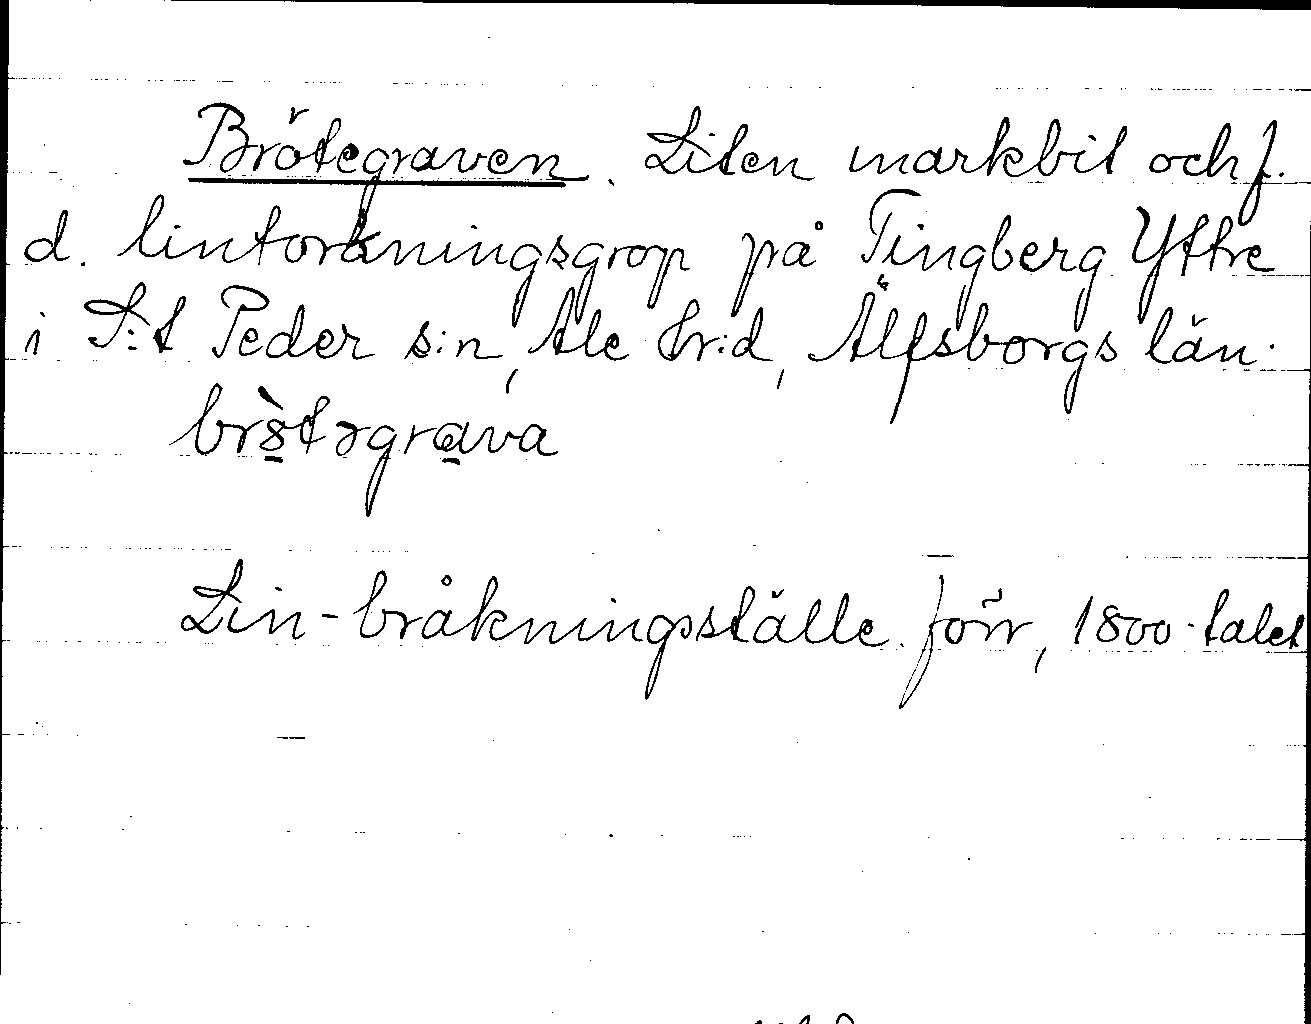 Brötegraven. Liten markbit och f.
d. lintorkningsgrop på Tingberg Yttre
i S:t Peder s:n, Ale hr:d, Älfsborgs län.
grava
Lin-bråkningsställe förr, 1800-talet